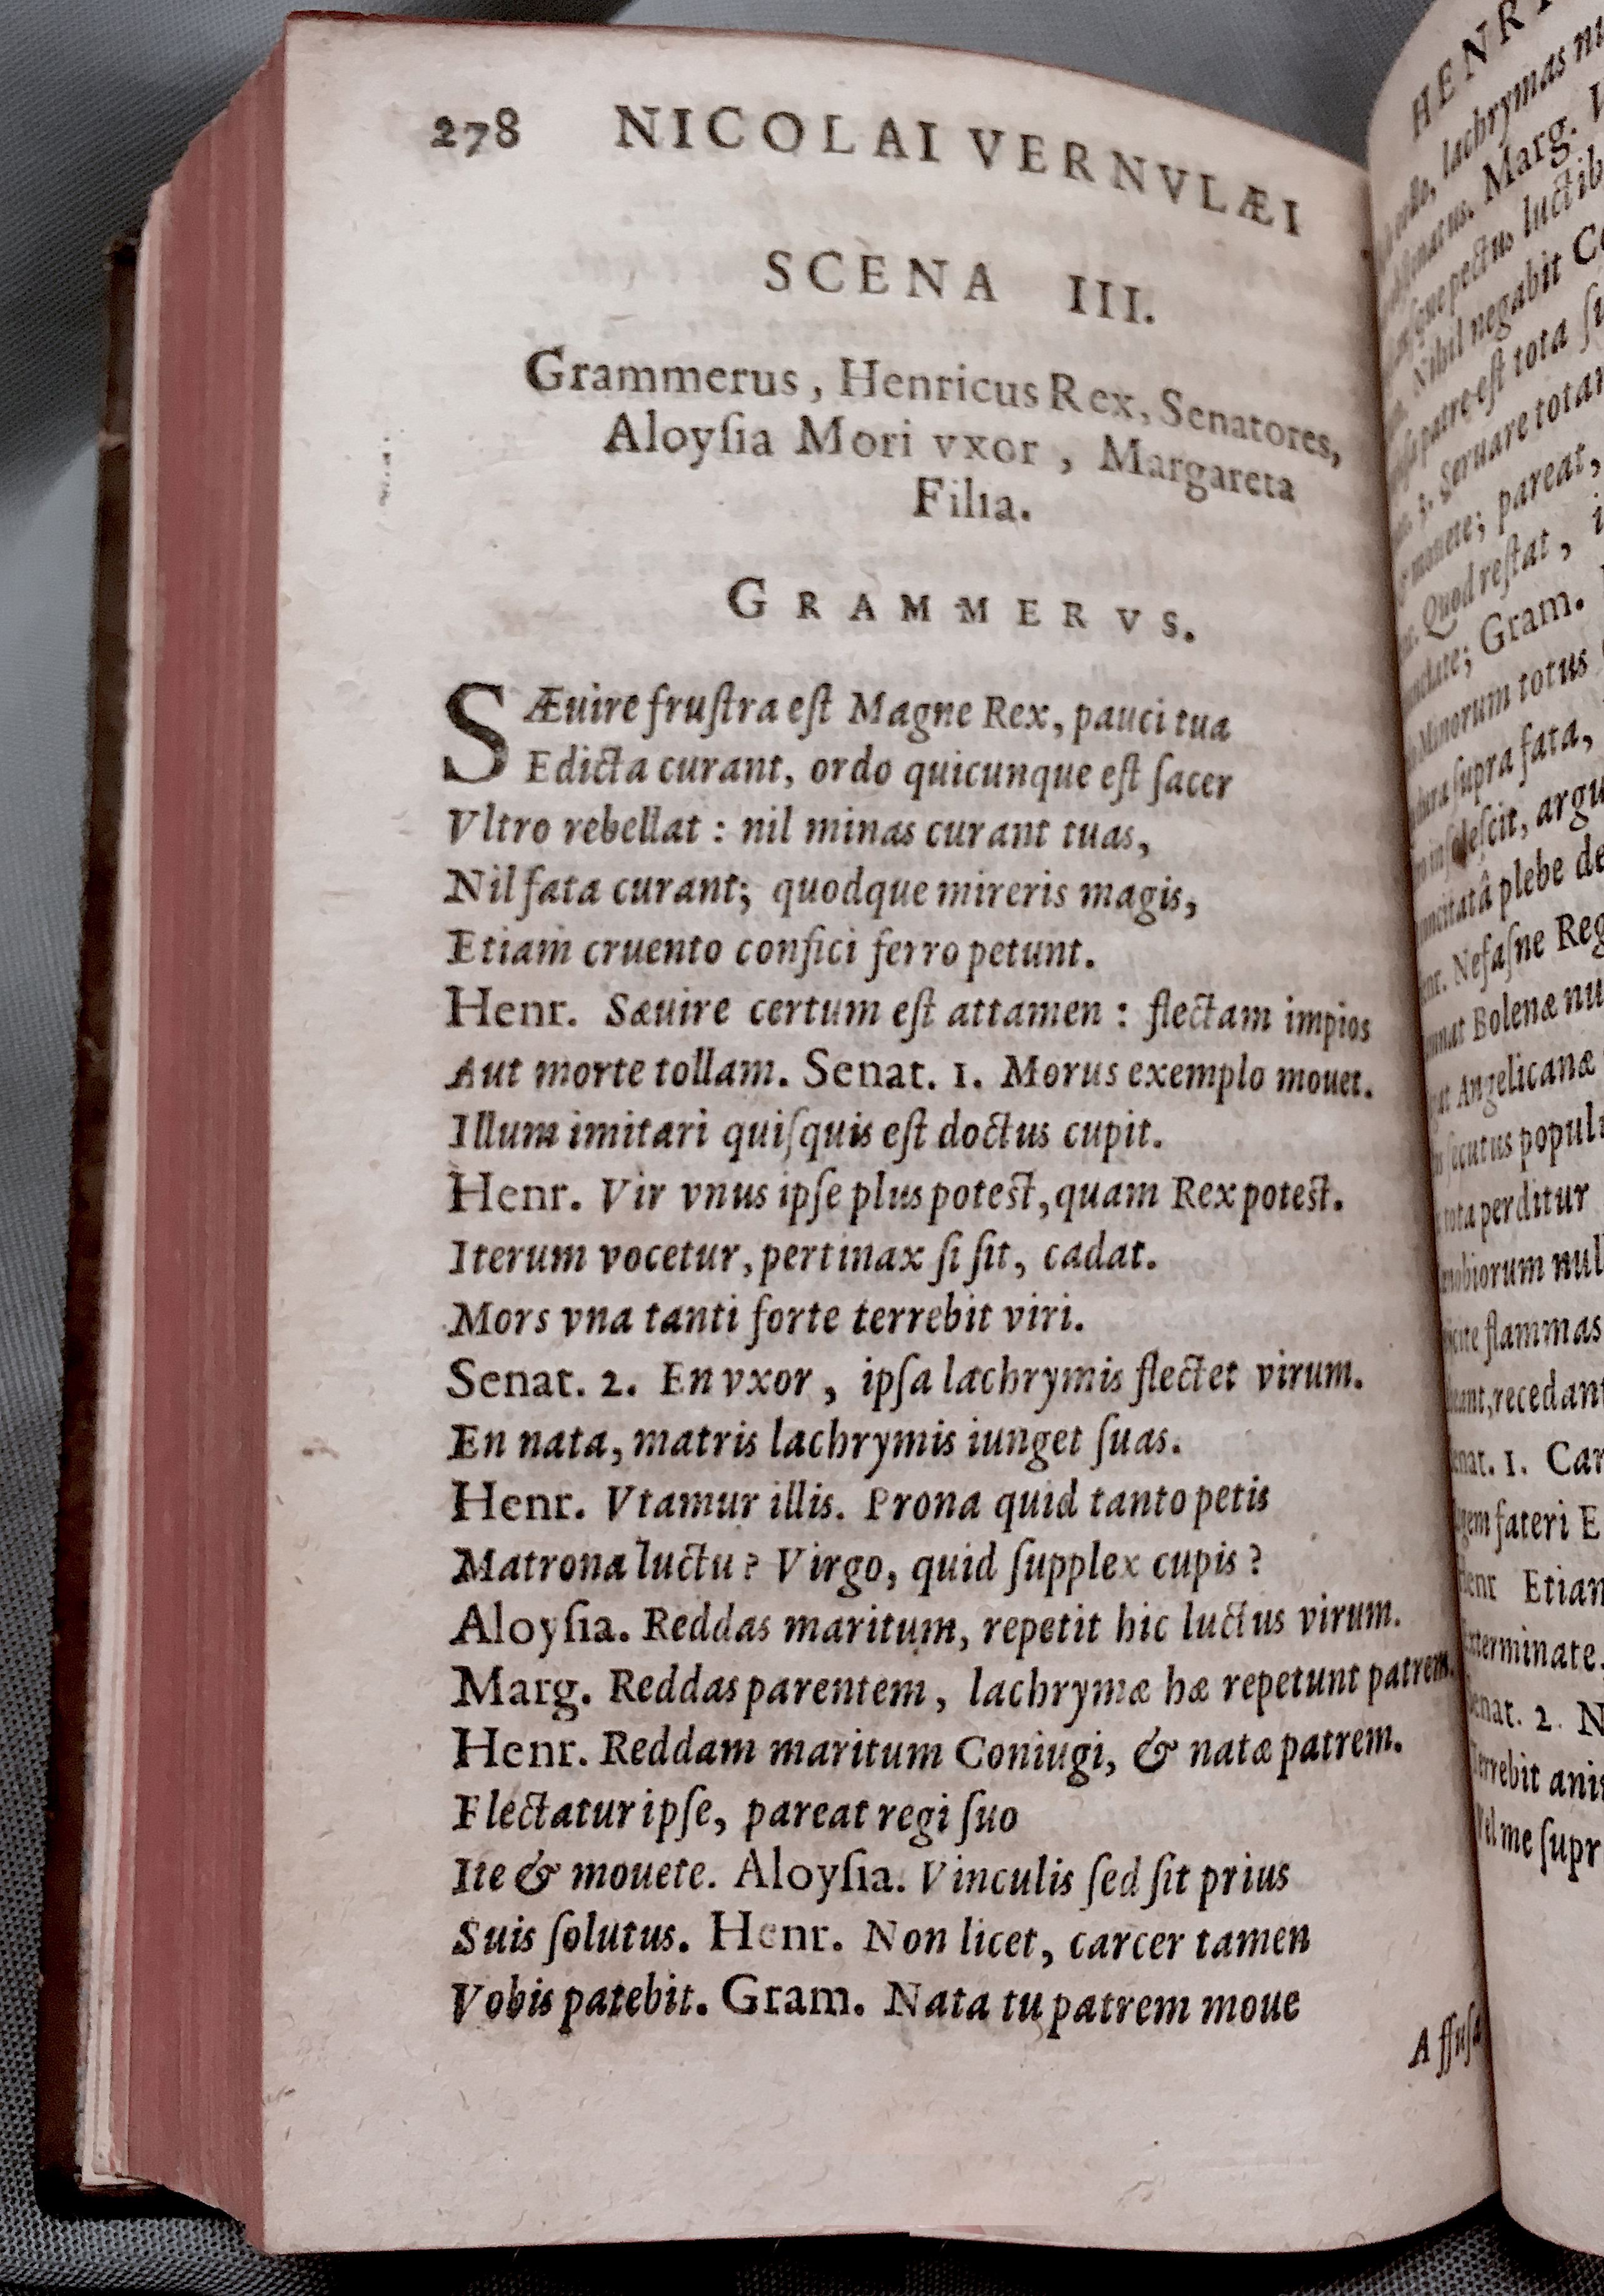 278 NICOLAI VERNVLÆI
SCENA III.
Grammerus, Henricus Rex, Senatores,
Aloyſia Mori vxor, Margareta
Filia.
GRAMMERVS.
SÆuire fruſtra eſt Magne Rex, pauci tua
Edicta curant, ordo quicunque eſt ſacer
Vltro rebellat : nil minas curant tuas,
Nil fata curant; quodque mireris magis,
Etiam cruento confici ferro petunt.
Henr. Sæuire certum eſt attamen : flectam impios
Aut morte tollam. Senat. 1. Morus exemplo mouet.
Illum imitari quiſquis eſt doctus cupit.
Henr. Vir vnus ipſe plus potest, quam Rex potest.
Iterum vocetur, pertinax ſi ſit, cadat.
Mors vna tanti forte terrebit viri.
Senat. 2. En vxor, ipſa lachrymis flectet virum.
En nata, matris lachrymis iunget ſuas.
Henr. Vtamur illis. Prona quid tanto petis
Matrona luctu? Virgo, quid ſupplex cupis?
Aloyſia. Reddas maritum, repetit hic luctus virum.
Marg. Reddas parentem, lachrymæ hæ repetunt patrem.
Henr. Reddam maritum Coniugi, & natæ patrem.
Flectatur ipſe, pareat regi ſuo
Ite & mouete. Aloyſia. Vinculis ſed ſit prius
Suis ſolutus. Henr. Non licet, carcer tamen
Vobis patebit. Gram. Nata tu patrem moue
Aſſuſa
lachrymas
Marg.
negabit
eſt tota
ſeruare
mouete; pareat,
Quod reſtat,
Gram.
Minorum totus
ſupra fata,
plebe
Nefaſne
Bolenæ
Angelicanæ
ſecutus
perditur
flammas
recedant
1. Car
fateri E
Etian
2. N
me ſupr